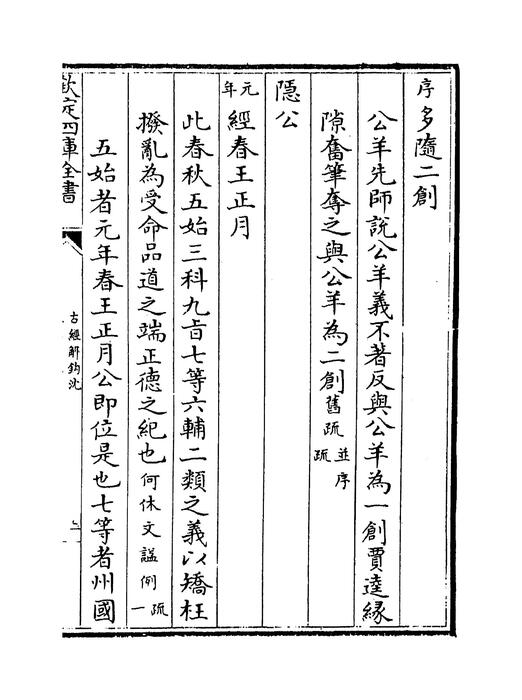 序多隨二創
公羊先師說公羊義不著反與公羊為一創賈逵緣
隙奮筆奪之與公羊為二創舊疏並序疏
隱公
元年經春王正月
此春秋五始三科九旨七等六輔二類之義以矯枉
撥亂為受命品道之端正德之紀也何休文諡例疏一
五始者元年春王正月公即位是也七等者州國
欽定四庫全書
古經解鈎沈